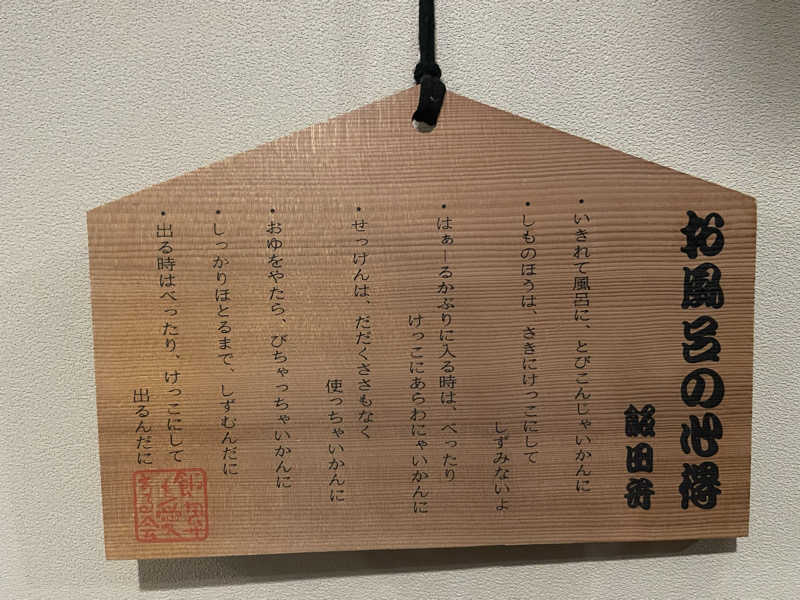 お風呂の心得
飯田弁
・いきれて風呂に、とびこんじゃいかんに
・しものほうは、さきにけっこにして
しずみないよ
・はぁーるかぶりに入る時は、べったり
けっこにあらわにゃいかんに
・せっけんは、だだくささもなく
使っちゃいかんに
・おゆをやたら、びちゃっちゃいかんに
・しっかりほとるまで、しずむんだに
・出る時はべったり、けっこにして
出るんだに